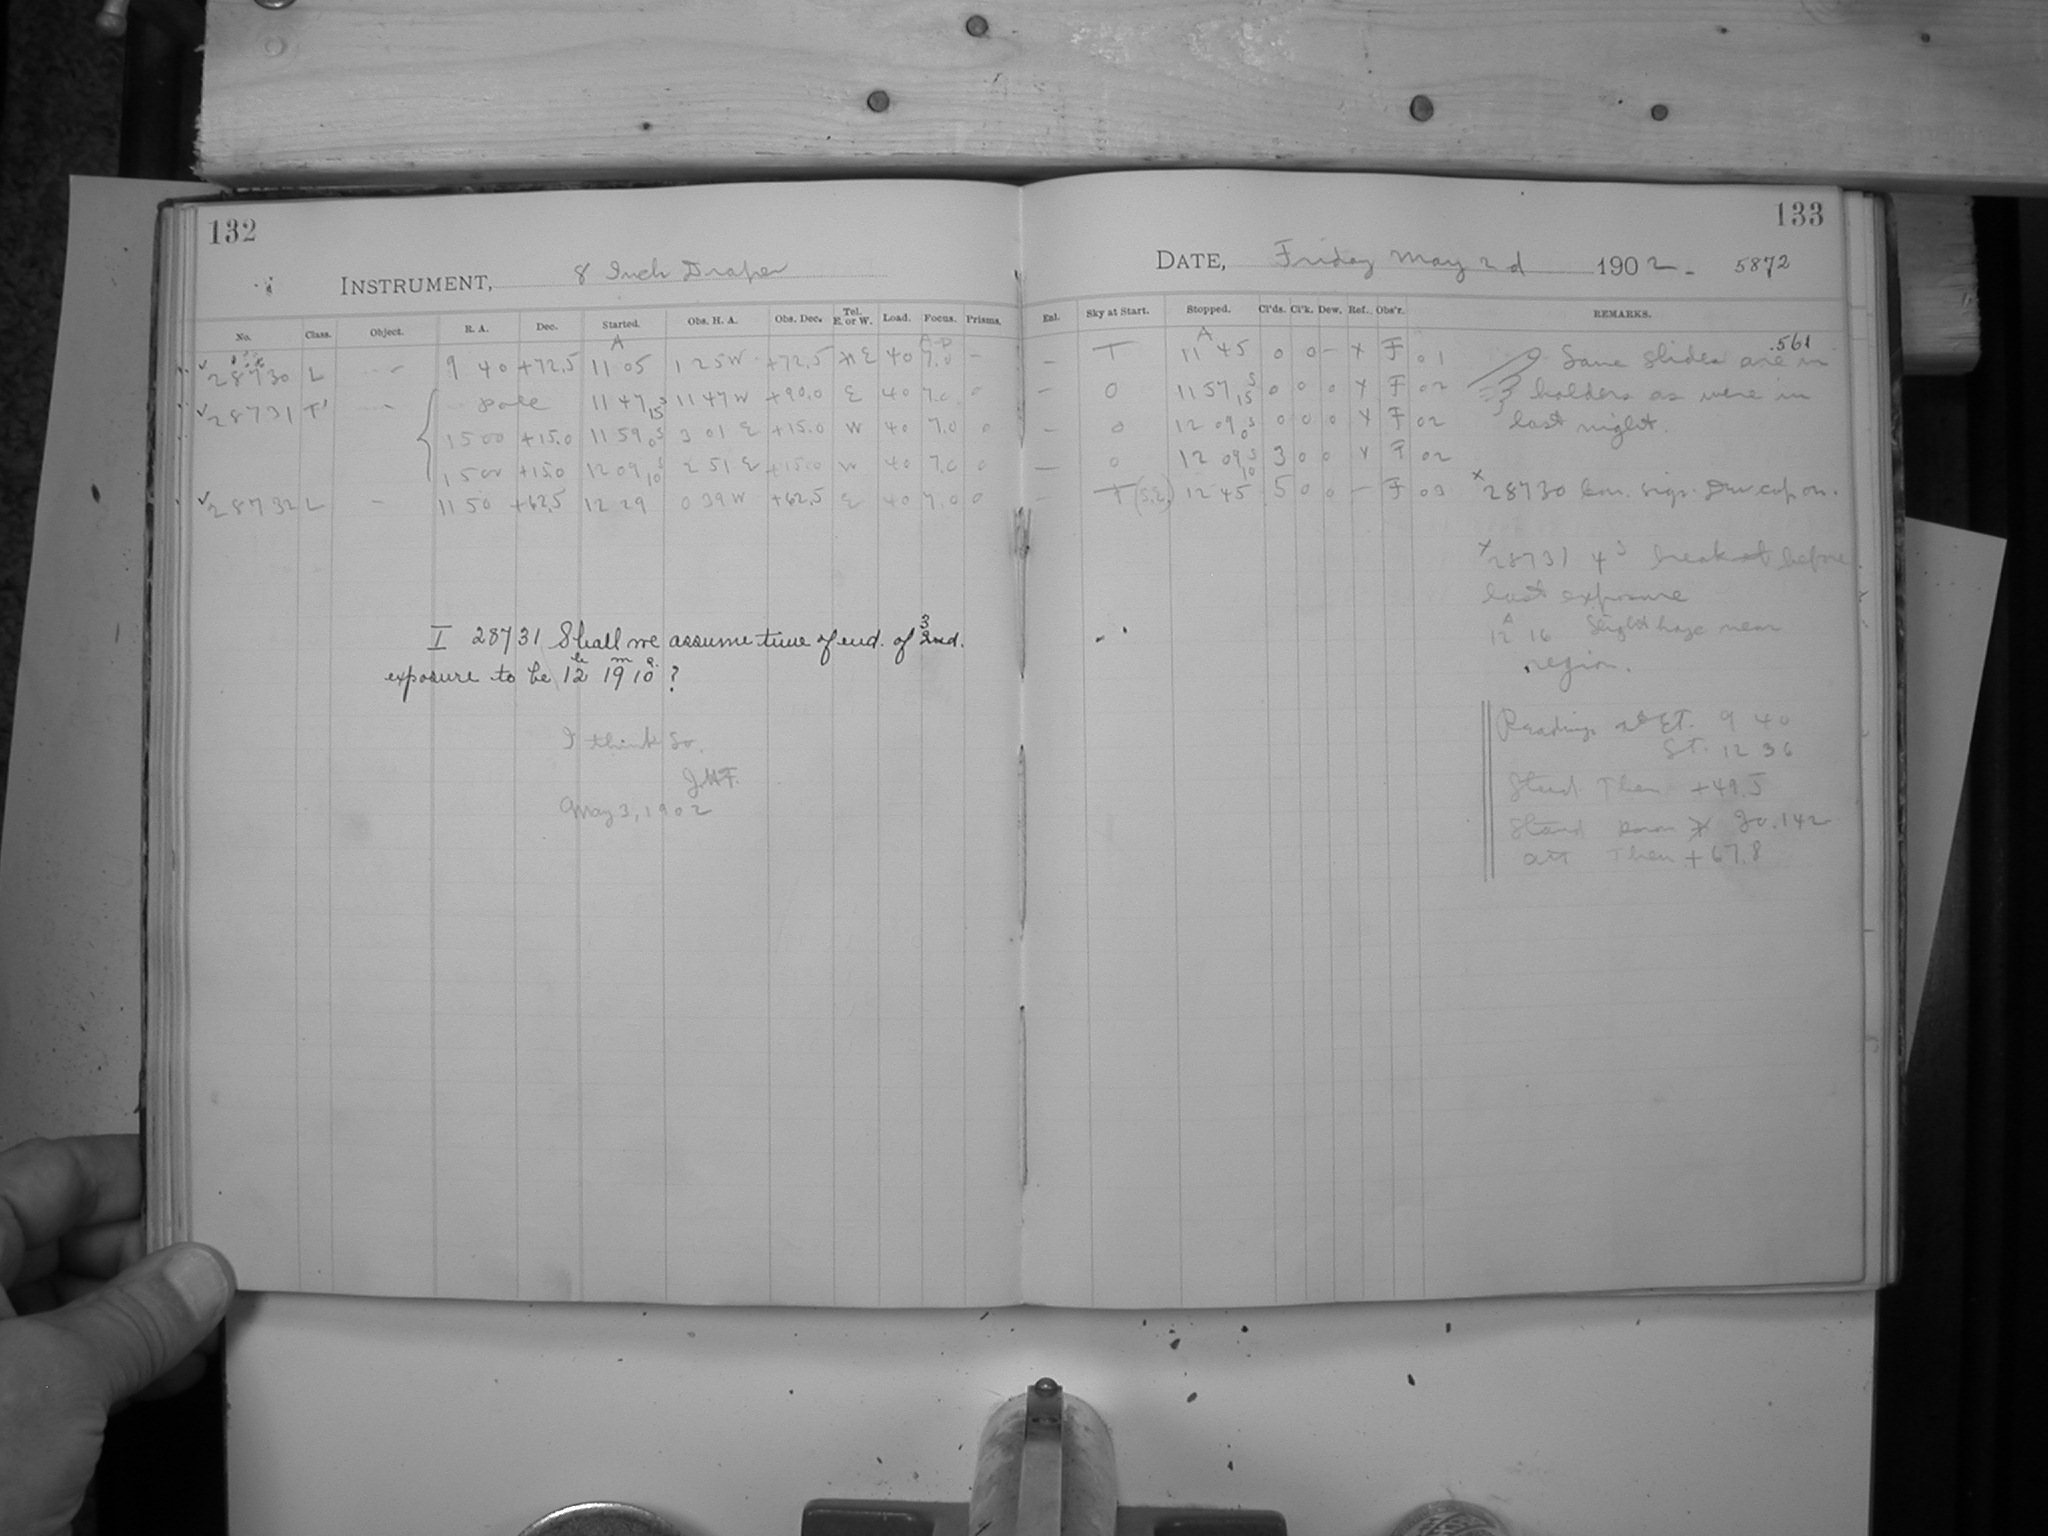 132
INSTRUMENT, 8 Inch Draper
No. Class. Object. R. A. Dec. Started. Obs. H. A. Obs. Dec. Tel. E. or W. Load. Focus. Prisms.
A A-D
28730 L - 9 40 +72.5 11 05 1 25 W +72.5 E 40 7.0 -
28731 T' - Pole 11 47 15s 11 47 W +90.0 E 40 7.0 0
15 00 +15.0 11 59 0s 3 01 E +15.0 W 40 7.0 0
15 00 +15.0 12 09 10s 2 51 E +15.0 W 40 7.0 0
28732 L - 11 50 +62.5 12 29 0 39 W +62.5 E 40 7.0 0
I 28731 Shall we assume time of end. of 3 2nd.
exposure to be 12h 19m 10s. ?
I think so.
J.H.F.
May 3, 1902
133
DATE, Friday May 2d 1902 - 5872
Exl. Sky at Start. Stopped. Cl'ds. Cl'k. Dew. Ref. Obs'r. REMARKS.
A
- T 11 45 0 0 - X F 01
- 0 11 57 15s 0 0 0 X F 02
- 0 12 09 0s 0 0 0 X F 02
- 0 12 09 10s 3 0 0 X F 02
- T (S.E.) 12 45 5 0 0 - F 03
.561
Same slides are in
holders as were in
last night.
x 28730 Dew cap on.
x 28731 4s break before
last exposure
12 16 Slight haze near
region.
Readings at ET. 9 40
ST. 12 36
Stand Ther +49.5
Stand 30.142
att Ther +67.8